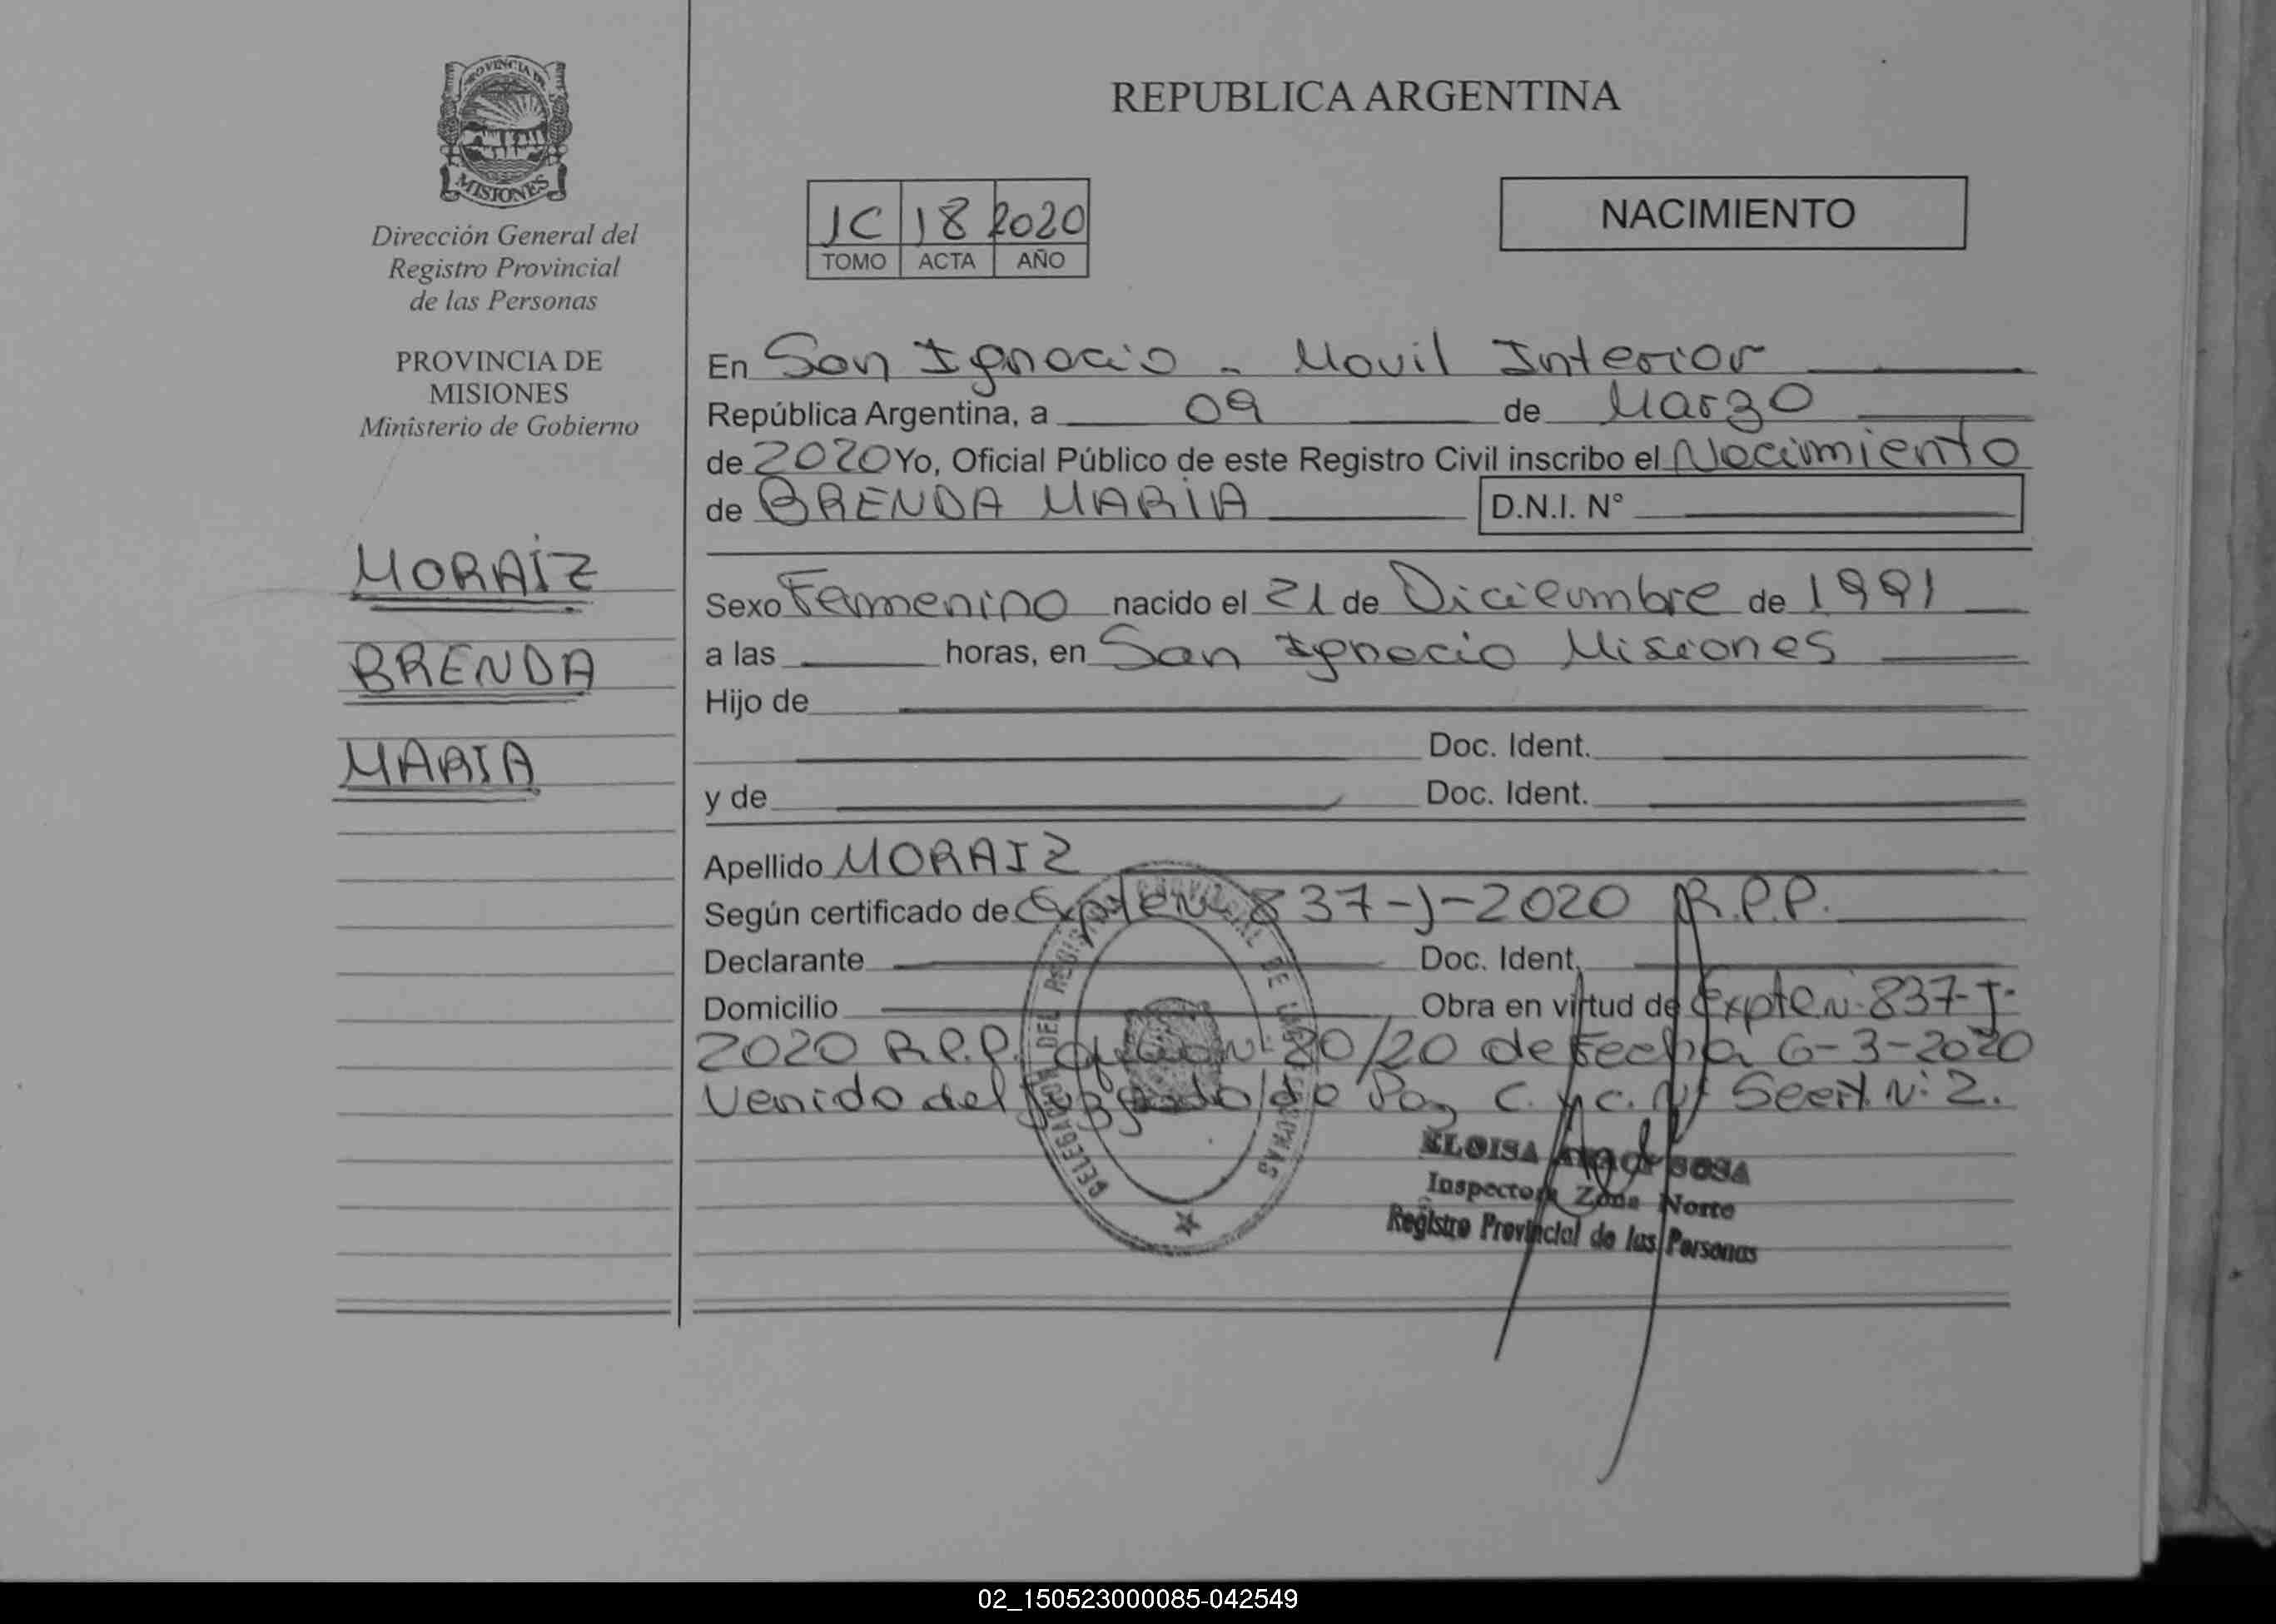 PROVINCIA DE
MISIONES
Dirección General del
Registro Provincial
de las Personas
PROVINCIA DE
MISIONES
Ministerio de Gobierno
MORAÍZ
BRENDA
MARIA
REPUBLICA ARGENTINA
1C 18 2020
TOMO ACTA AÑO
NACIMIENTO
En San Ignacio - Movil Interior
República Argentina, a 09 de Marzo
de 2020 Yo, Oficial Público de este Registro Civil inscribo el Nacimiento
de BRENDA MARIA D.N.I. N°
Sexo Femenino nacido el 21 de Diciembre de 1991
a las horas, en San Ignacio Misiones
Hijo de
Doc. Ident.
y de Doc. Ident.
Apellido MORAIZ
Según certificado de Expte N: 837-J-2020 R.P.P.
Declarante Doc. Ident.
Domicilio Obra en virtud de Expte N: 837-J-
2020 R.P.P. N: 80/20 de Fecha 6-3-2020
Venido del Juzgado de Paz C. y C. N: Secrt. N: 2.
DELEGACION DEL REGISTRO PROVINCIAL DE LAS PERSONAS
ELOISA SOSA
Inspectora Zona Norte
Registro Provincial de las Personas
02_150523000085-042549